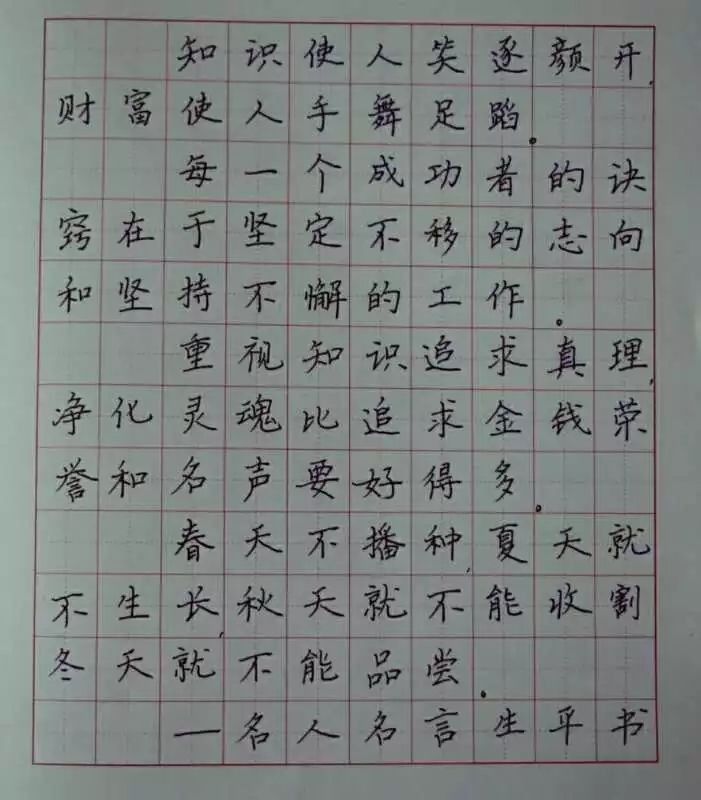 知识使人笑逐颜开,
财富使人手舞足蹈。
每一个成功者的诀
窍在于坚定不移的志向
和坚持不懈的工作。
重视知识追求真理,
净化灵魂比追求金钱荣
誉和名声要好得多。
春天不播种,夏天就
不生长,秋天就不能收割
冬天就不能品尝。
—名人名言生平书